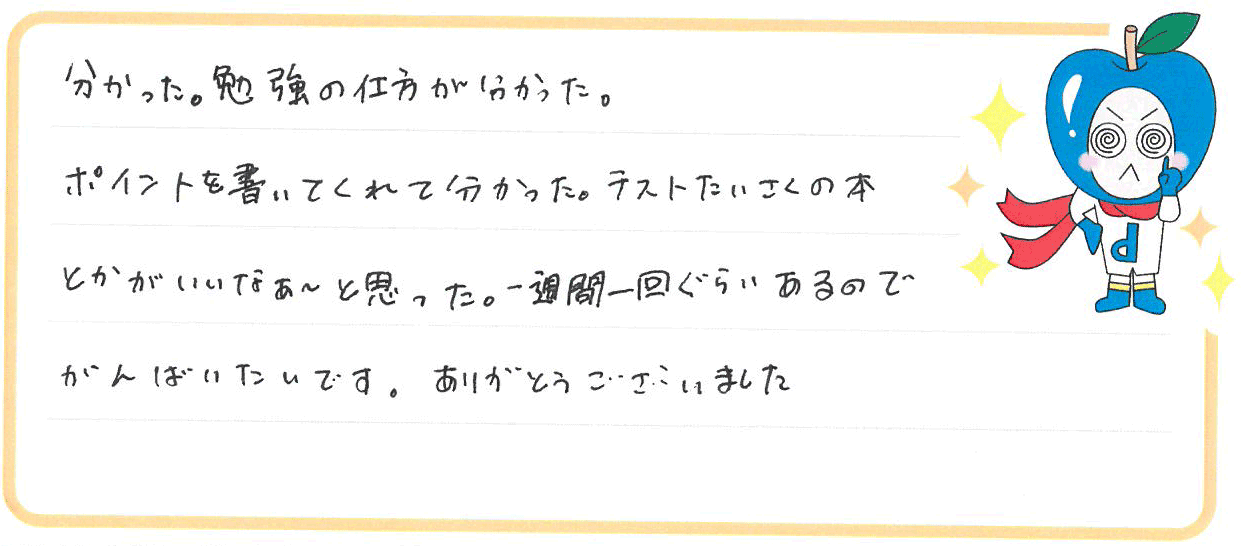 分かった。勉強の仕方が分かった。
ポイントを書いてくれて分かった。テストたいさくの本
とかがいいなぁ〜と思った。一週間一回ぐらいあるので
がんばいたいです。ありがとうございました
d